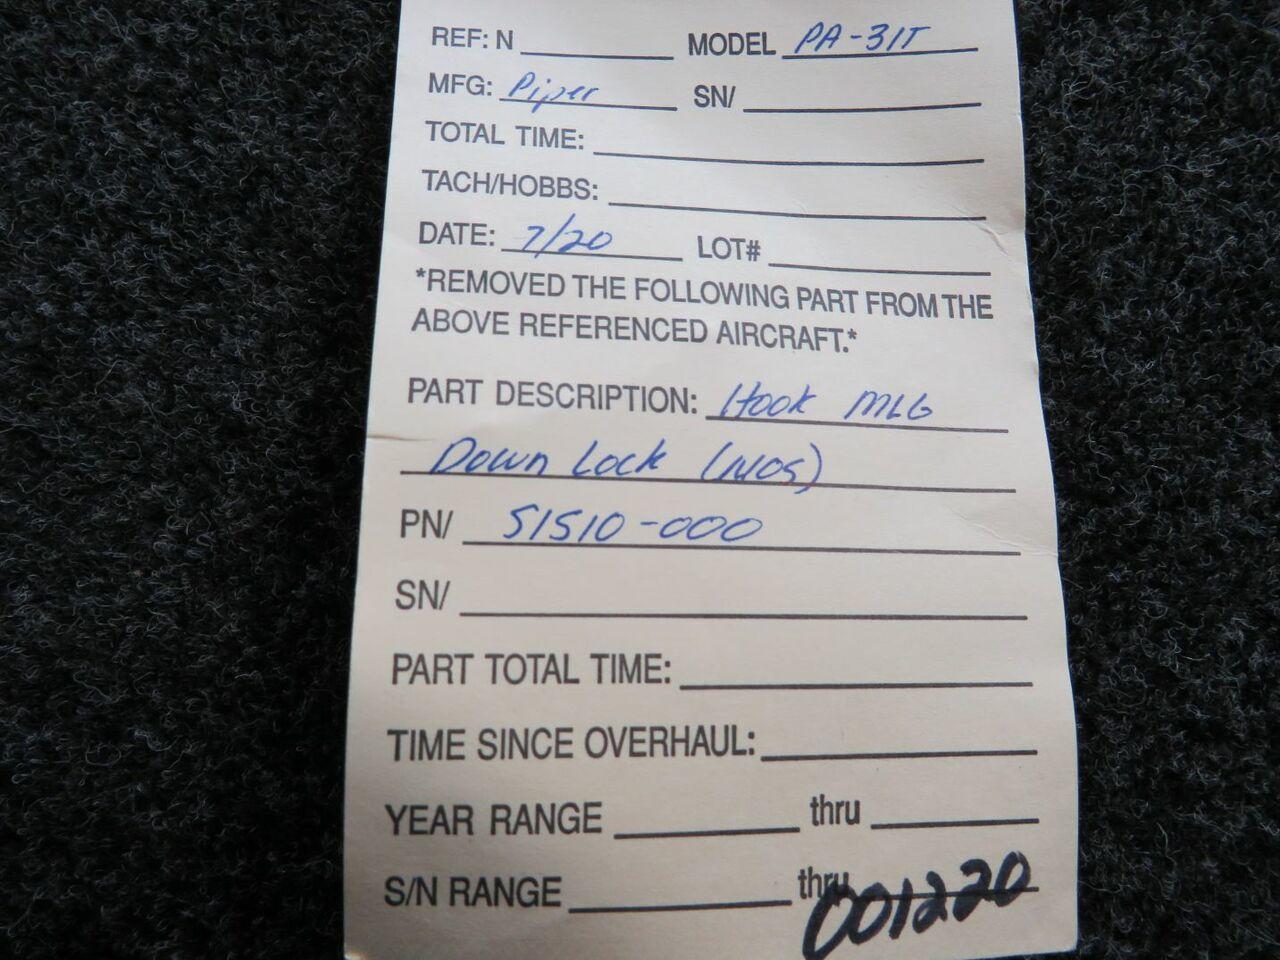 REF: N MODEL PA-31T
MFG: Piper SN/
TOTAL TIME:
TACH/HOBBS:
DATE: 7/20 LOT#
*REMOVED THE FOLLOWING PART FROM THE
ABOVE REFERENCED AIRCRAFT.*
PART DESCRIPTION: Hook MLG
Down Lock (NOS)
PN/ 51510-000
SN/
PART TOTAL TIME:
TIME SINCE OVERHAUL:
YEAR RANGE thru
S/N RANGE thru
001220